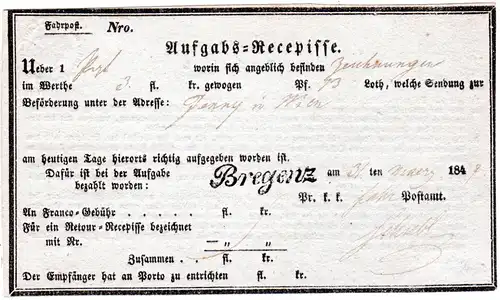 Fahrpost. Nro.
Aufgabs-Recepisse.
Ueber 1 worin sich angeblich befinden Zeichnungen
im Werthe 3. fl. kr. gewogen Pf. 13 Loth, welche Sendung zur
Beförderung unter der Adresse: Jenny in Wien
am heutigen Tage hierorts richtig aufgegeben worden ist.
Dafür ist bei der Aufgabe
bezahlt worden:
Bregenz am ten 184
Pr. k. k. fahr Postamt.
An Franco-Gebühr . . . . . fl. kr.
Für ein Retour-Recepisse bezeichnet
mit Nr. — „ „
Zusammen . fl. kr.
Der Empfänger hat an Porto zu entrichten fl. kr.